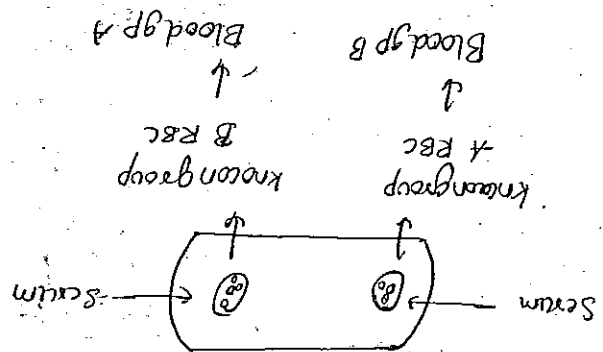 Serum
Serum
Known group
A RBC
Known group
B RBC
Blood gp B
Blood gp A